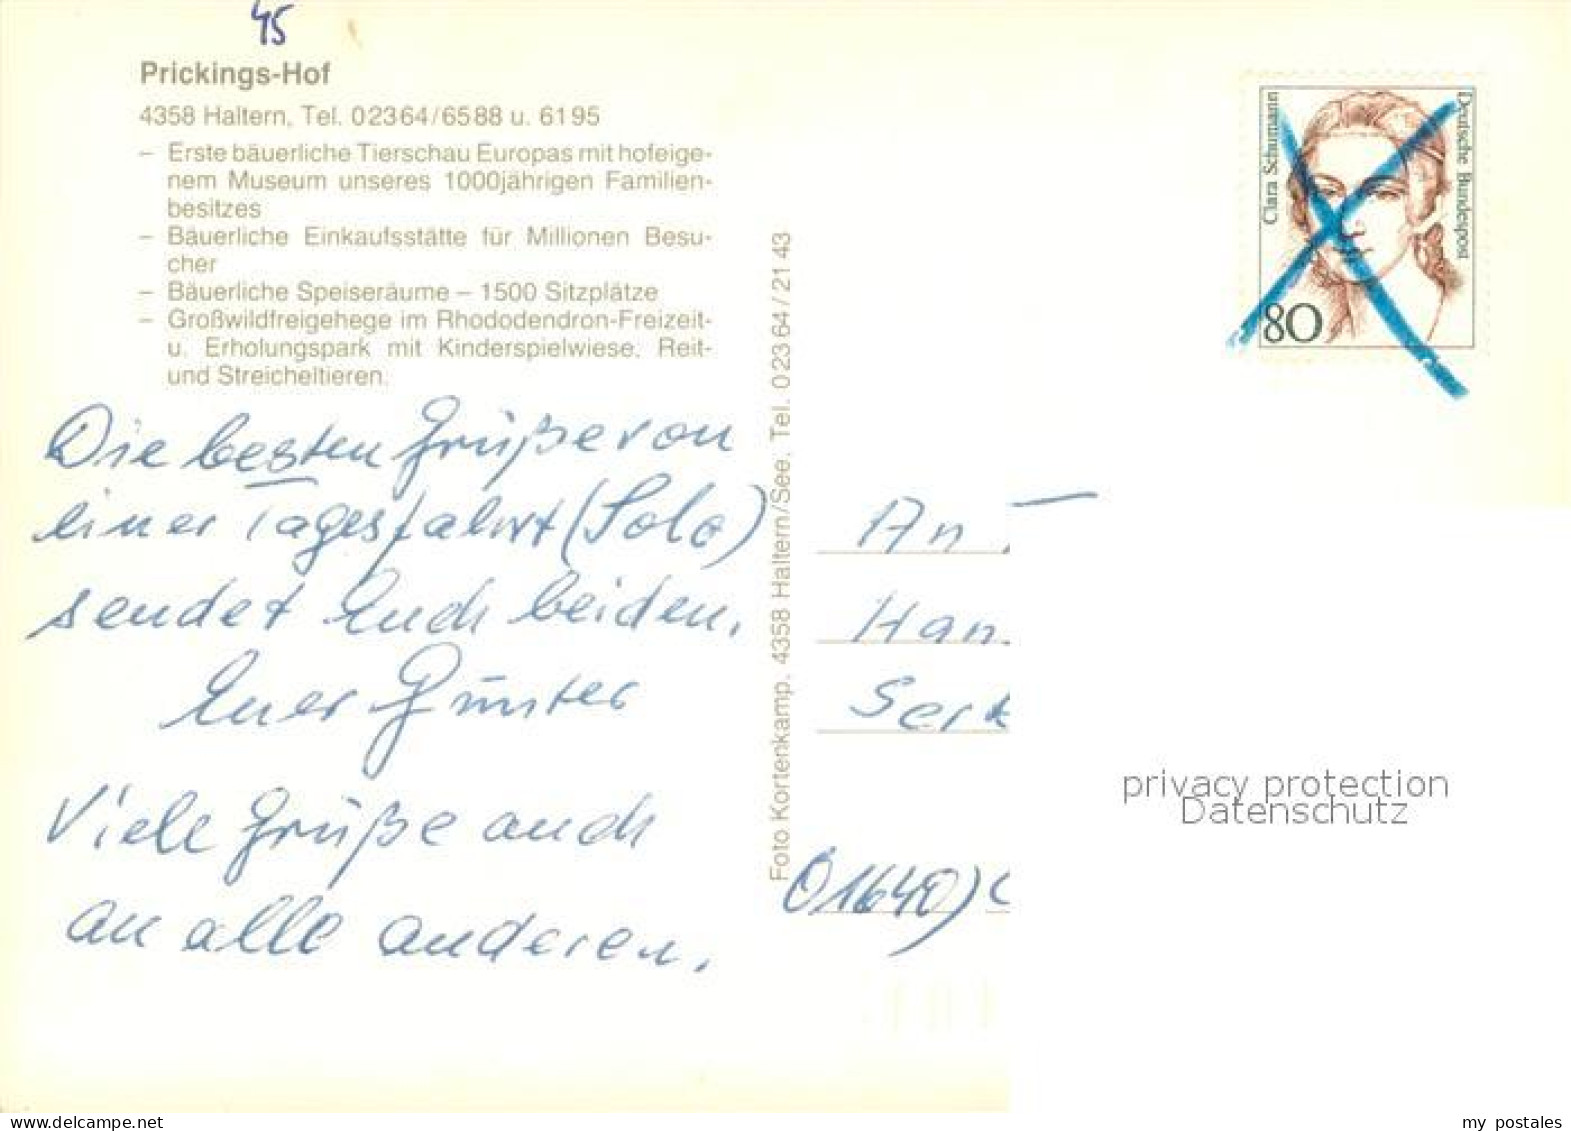 45
Prickings-Hof
4358 Haltern, Tel. 02364/6588 u. 6195
– Erste bäuerliche Tierschau Europas mit hofeige-
nem Museum unseres 1000jährigen Familien-
besitzes
– Bäuerliche Einkaufsstätte für Millionen Besu-
cher
– Bäuerliche Speiseräume – 1500 Sitzplätze
– Großwildfreigehege im Rhododendron-Freizeit-
u. Erholungspark mit Kinderspielwiese, Reit-
und Streicheltieren.
Die besten Grüße von
einer Tagesfahrt (Solo)
sendet Euch beiden,
Euer Günter
Viele Grüße auch
an alle anderen.
Foto Kortenkamp, 4358 Haltern/See, Tel. 02364/2143
Clara Schumann
Deutsche Bundespost
80
An
Han
Serk
O1640)
privacy protection
Datenschutz
my postales